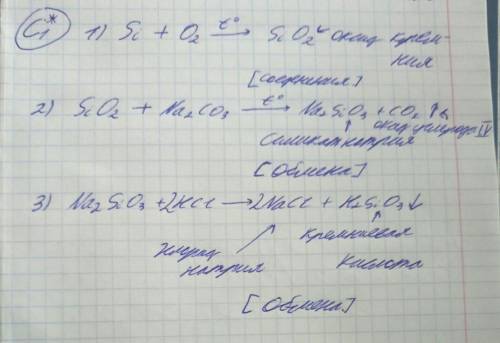 C1* 1) Si + O2 t° → SiO2 оксид крем-
ния
[соединения]
2) SiO2 + Na2CO3 t° → Na2SiO3 + CO2 ↑
оксид углерода IV
силикат натрия
[Обмена]
3) Na2SiO3 + 2HCl → 2NaCl + H2SiO3 ↓
хлорид натрия
кремниевая кислота
[Обмена]